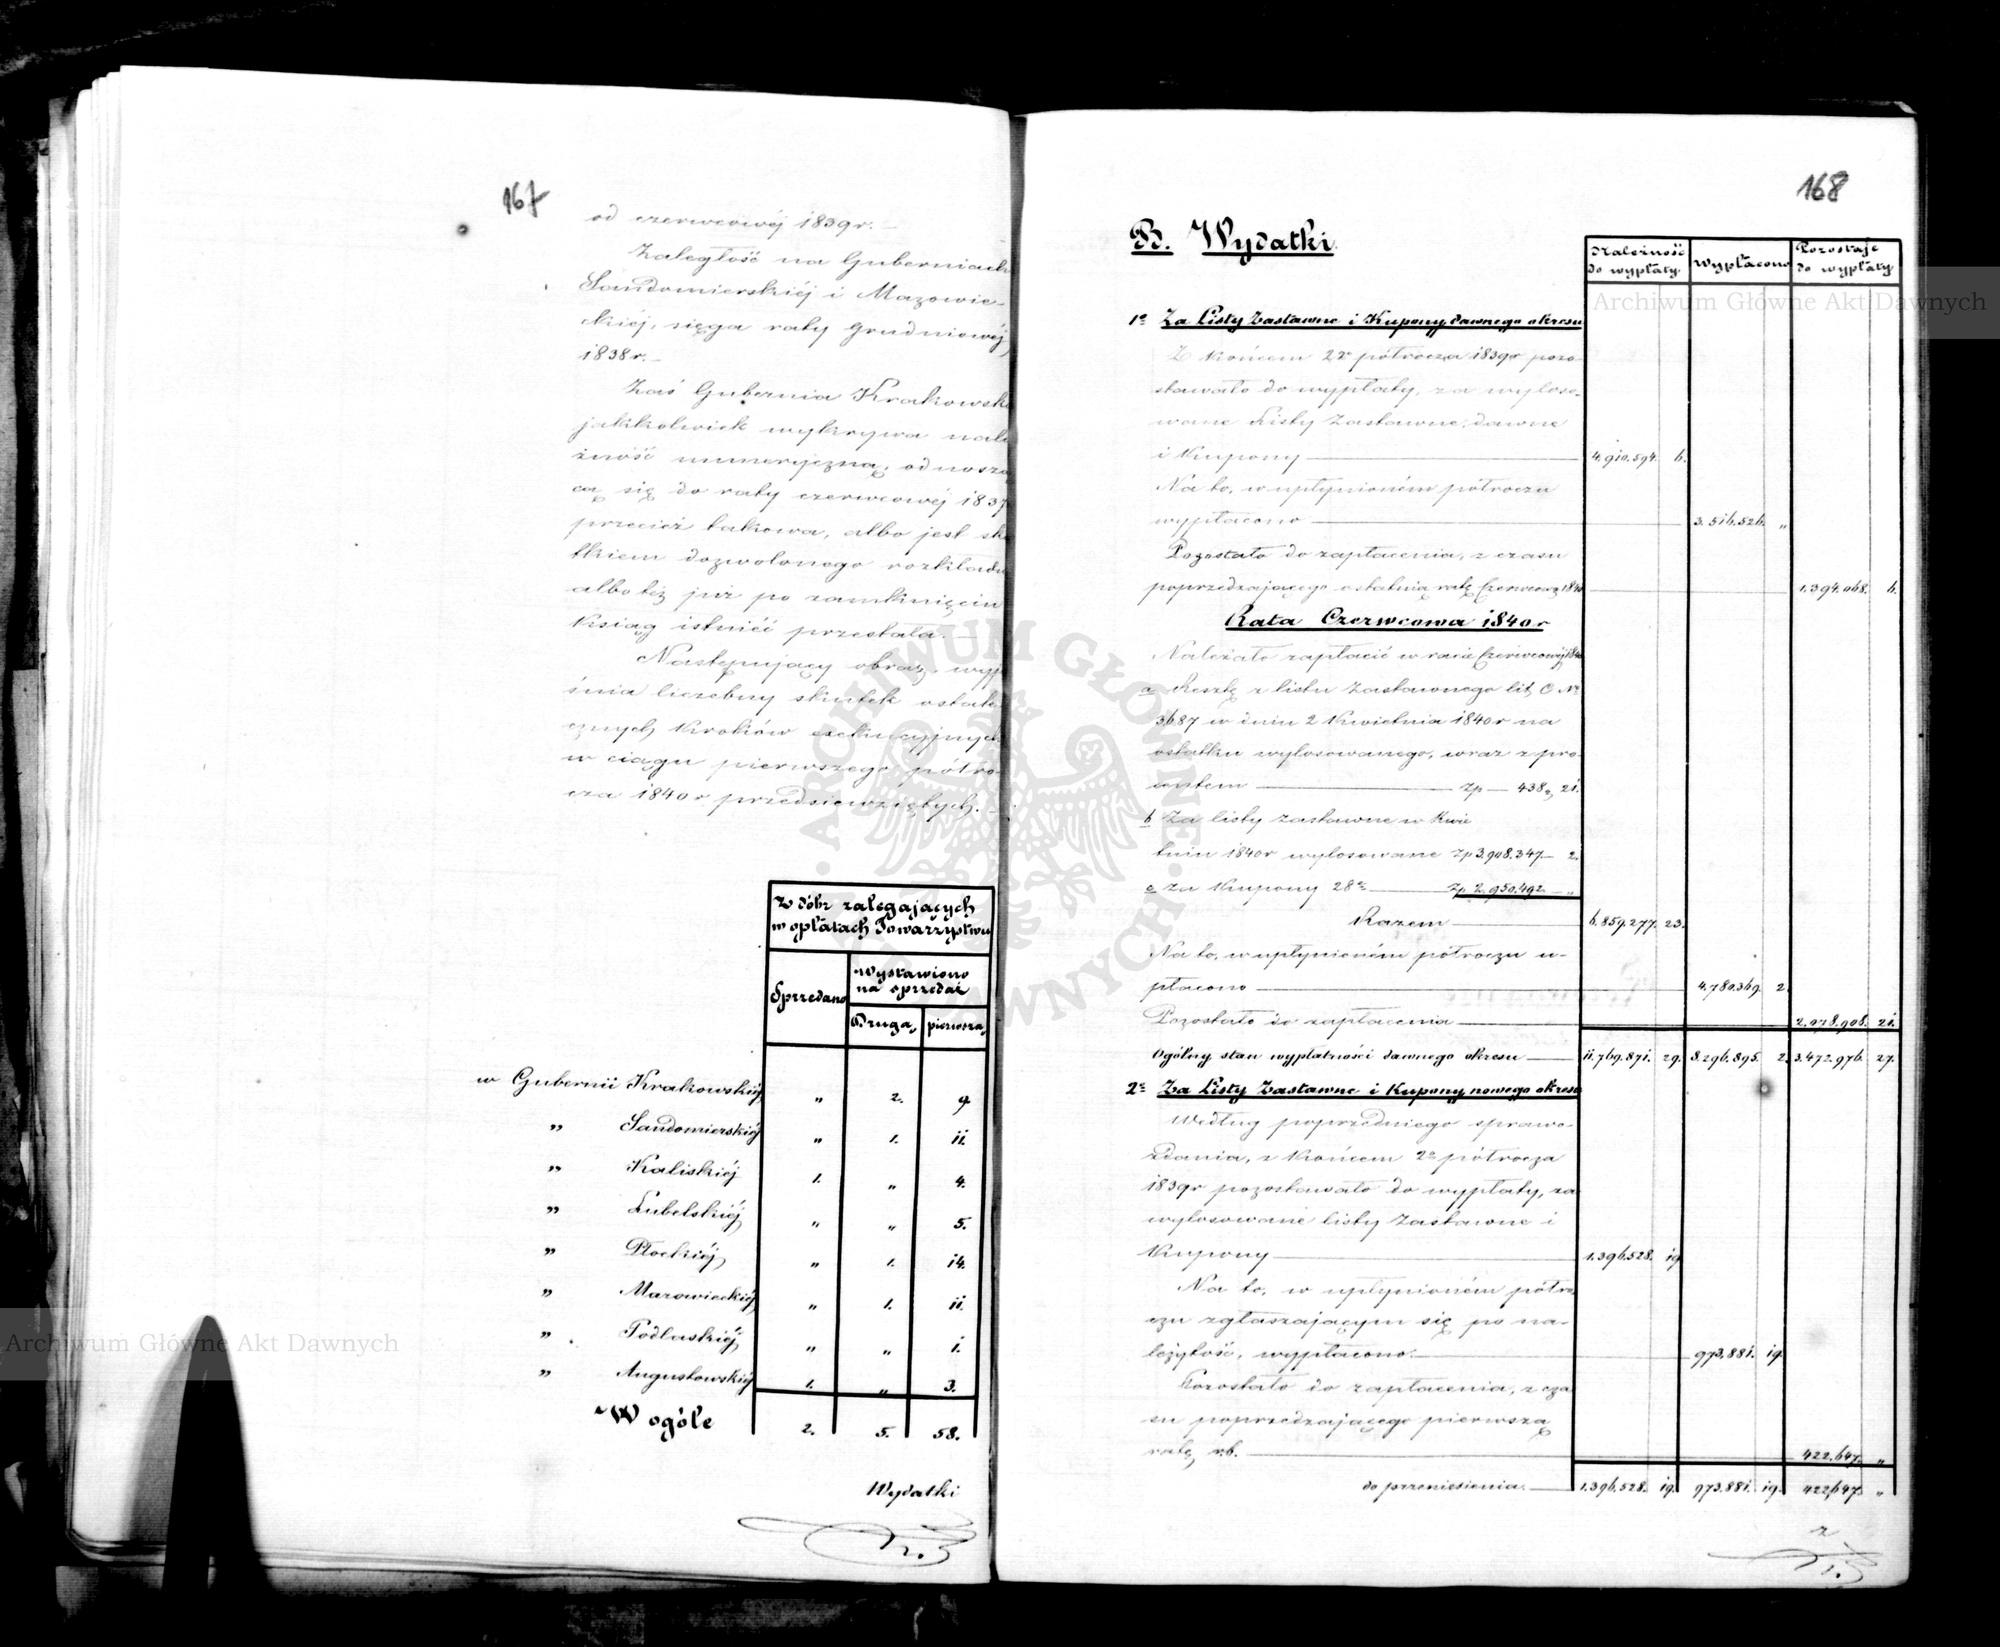 167
od czerwcowéj 1839r. —
Zaległość na Guberniach
Sandomierskiéj i Mazowie-
ckiéj, sięga raty Grudniowéj
1838r. —
Zaś Gubernia Krakowska
jakkolwiek wykrywa nale
żność numeryczną, odnoszą
cą się do raty czerwcowéj 1837
przecież takowa, albo jest sku
tkiem dozwolonego rozkładu
albo też już po zamknięciu
Ksiąg istnieć przestała. —
Następujący obraz, wyja
śnia liczebny skutek ostate
cznych kroków exekucyjnych
w ciągu pierwszego półro-
cza 1840r przedsiewziętych. —
Z dóbr zalegających
w opłatach Towarzystwu
Sprzedano
Wystawiono
na sprzedaż
Drugą, pierwszą,
w Gubernii Krakowskiéj „ 2. 9
„ Sandomierskiéj „ 1. 11.
„ Kaliskiéj 1. „ 4.
„ Lubelskiéj „ „ 5.
„ Płockiéj „ 1. 14.
„ Mazowieckiéj „ 1. 11.
„ Podlaskiéj „ „ 1.
„ Augustowskiéj 1. „ 3.
W ogóle 2. 5. 58.
Wydatki
168
B. Wydatki.
Należność
do wypłaty
Wypłacono
Pozostaje
do wypłaty
1o Za Listy Zastawne i Kupony dawnego okresu
Z końcem 2go półrocza 1839r pozo-
stawało do wypłaty, za wyloso-
wane Listy Zastawne, dawne
i Kupony — 4.910.594. 6.
Na to, w upłynioném półroczu
wypłacono — 3.516.526. „
Pozostało do zapłacenia, z czasu
poprzedzającego ostatnią ratę Czerwcową 1840 — 1.394.068. 6.
Rata Czerwcowa 1840r
Należało zapłacić w racie Czerwcowéj 1840
a Resztę z listu Zastawnego lit. C No
3687 w dniu 2 Kwietnia 1840r na
ostatku wylosowanego, wraz z pro-
centem — Zp — 438, 21.
b Za listy Zastawne w Kwie
tniu 1840r wylosowane Zp 3.908.347 — 2.
c za Kupony 28e — Zp. 2.950.492. — „
Razem — 6.859.277. 23.
Na to, w upłynioném półroczu w-
płacono — 4.780.369. 2.
Pozostało do zapłacenia — 2.078.908. 21.
Ogólny stan wypłatności dawnego okresu — 11.769.871. 29. 8.296.895. 2. 3.472.976. 27.
2o Za Listy Zastawne i Kupony nowego okresu
Według poprzedniego sprawo-
zdania, z końcem 2o półrocza
1839r pozostawało do wypłaty, za
wylosowane listy Zastawne i
Kupony — 1.396.528. 19
Na to, w upłynioném półro
czu zgłaszającym się po na-
leżytość, wypłacono. — 973.881. 19.
Pozostało do zapłacenia, z cza
su poprzedzającego pierwszą
ratę r.b. — 422.647. „
do przeniesienia. — 1.396.528. 19. 973.881. 19. 422.647. „
z
Archiwum Główne Akt Dawnych
Archiwum Główne Akt Dawnych
ARCHIWUM GŁÓWNE AKT DAWNYCH